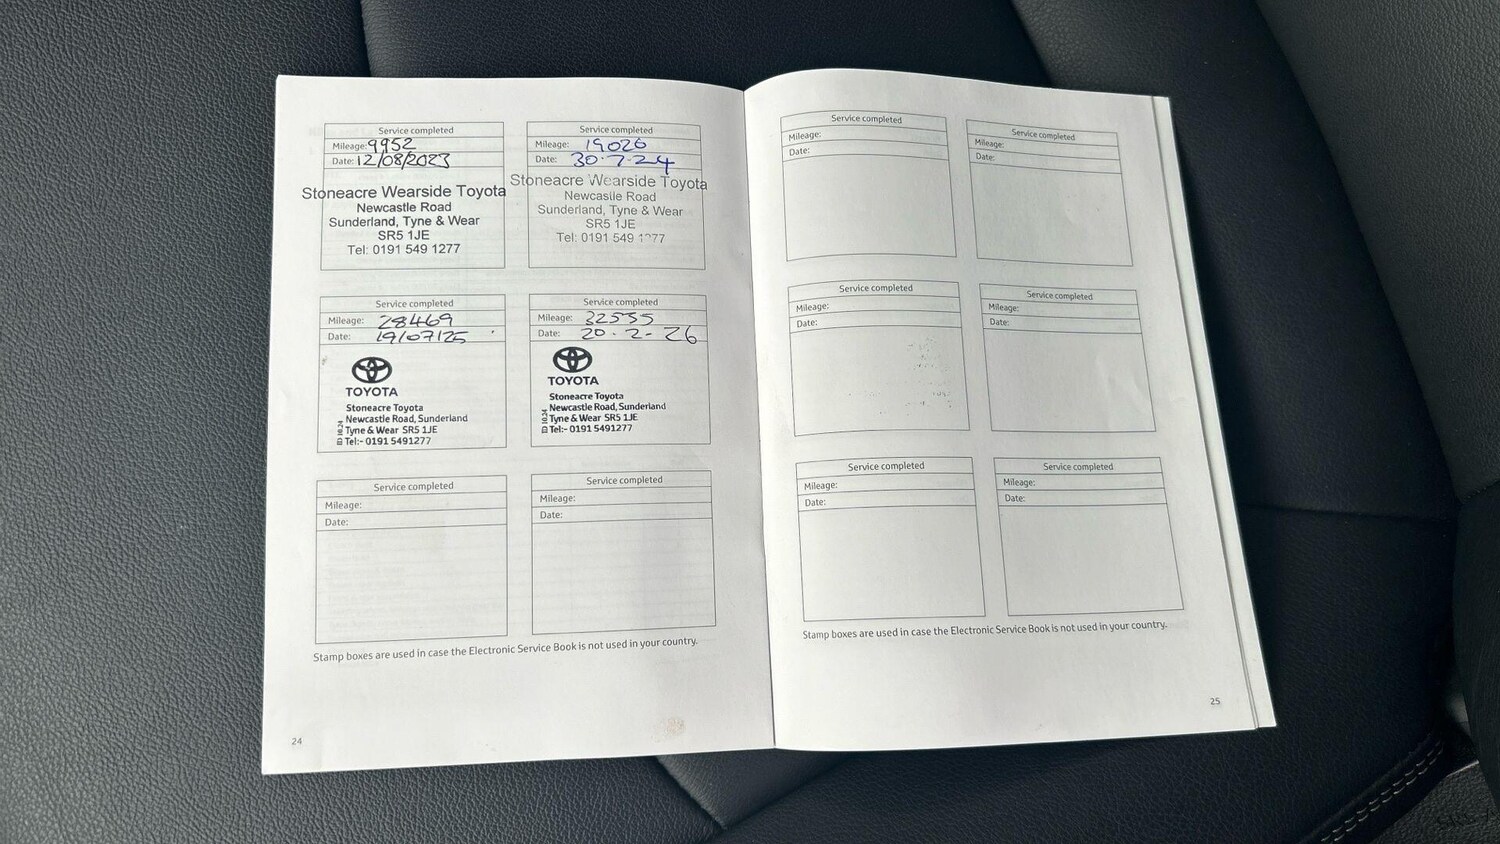 Service completed
Mileage: 9952
Date: 12/08/2023
Stoneacre Wearside Toyota
Newcastle Road
Sunderland, Tyne & Wear
SR5 1JE
Tel: 0191 549 1277
Service completed
Mileage: 19026
Date: 30·7·24
Stoneacre Wearside Toyota
Newcastle Road
Sunderland, Tyne & Wear
SR5 1JE
Tel: 0191 549 1277
Service completed
Mileage: 28469
Date: 19/07/25
TOYOTA
Stoneacre Toyota
Newcastle Road, Sunderland
Tyne & Wear SR5 1JE
Tel:- 0191 5491277
Service completed
Mileage: 32535
Date: 20·2-26
TOYOTA
Stoneacre Toyota
Newcastle Road, Sunderland
Tyne & Wear SR5 1JE
Tel:- 0191 5491277
Service completed
Mileage:
Date:
Service completed
Mileage:
Date:
Stamp boxes are used in case the Electronic Service Book is not used in your country.
24
Service completed
Mileage:
Date:
Service completed
Mileage:
Date:
Service completed
Mileage:
Date:
Service completed
Mileage:
Date:
Service completed
Mileage:
Date:
Service completed
Mileage:
Date:
Stamp boxes are used in case the Electronic Service Book is not used in your country.
25